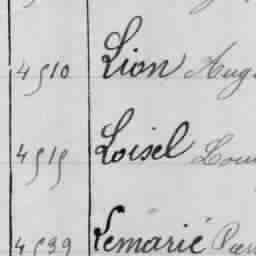 4510 Lion Aug
4515 Loisel Lou
4599 Lemarié